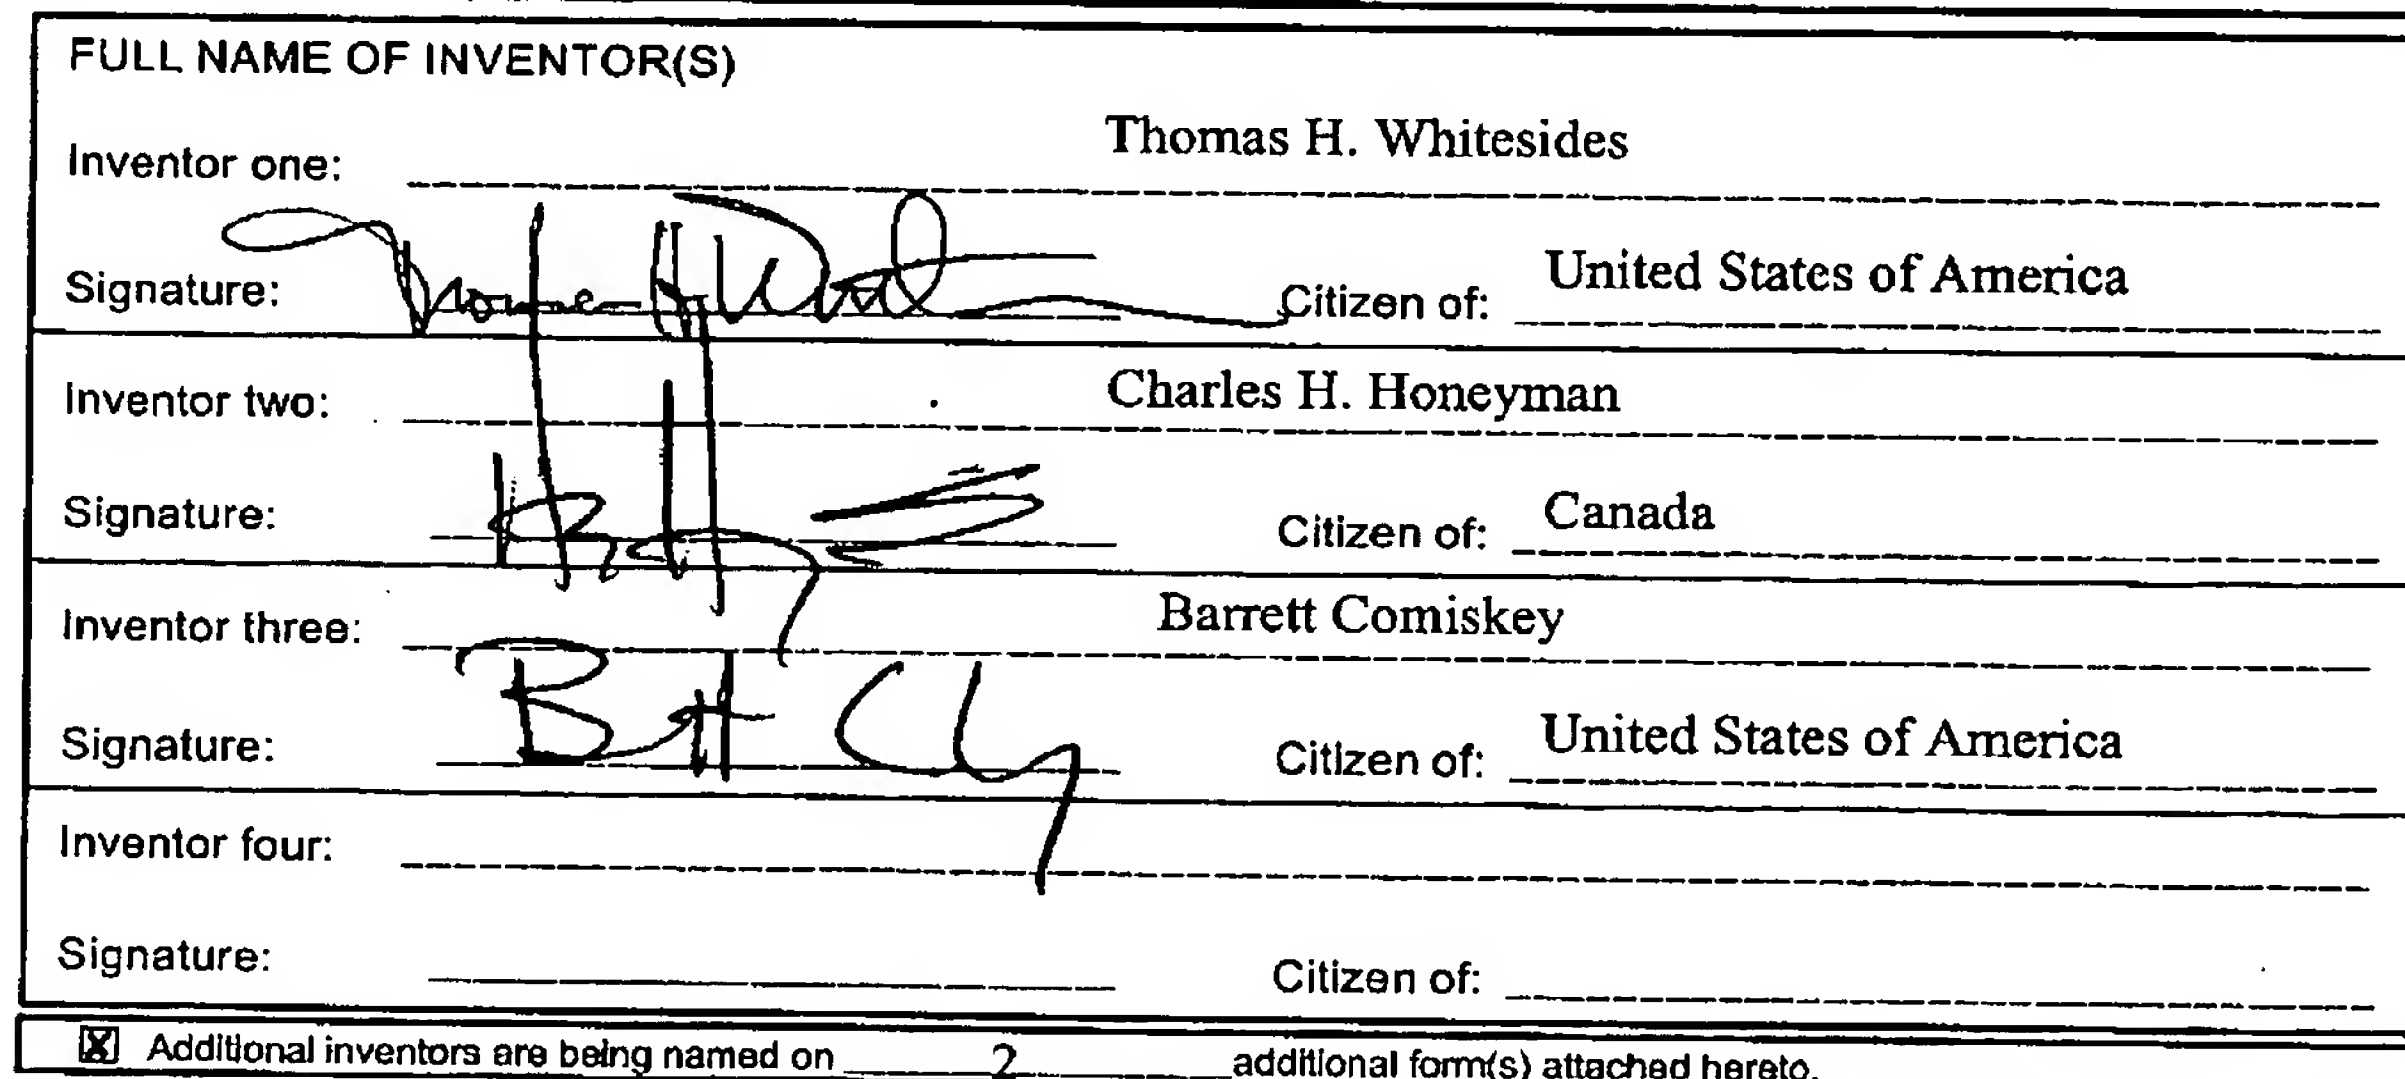 FULL NAME OF INVENTOR(S)
Inventor one: Thomas H. Whitesides
Signature: Citizen of: United States of America
Inventor two: Charles H. Honeyman
Signature: Citizen of: Canada
Inventor three: Barrett Comiskey
Signature: Citizen of: United States of America
Inventor four:
Signature: Citizen of:
☒ Additional inventors are being named on 2 additional form(s) attached hereto.